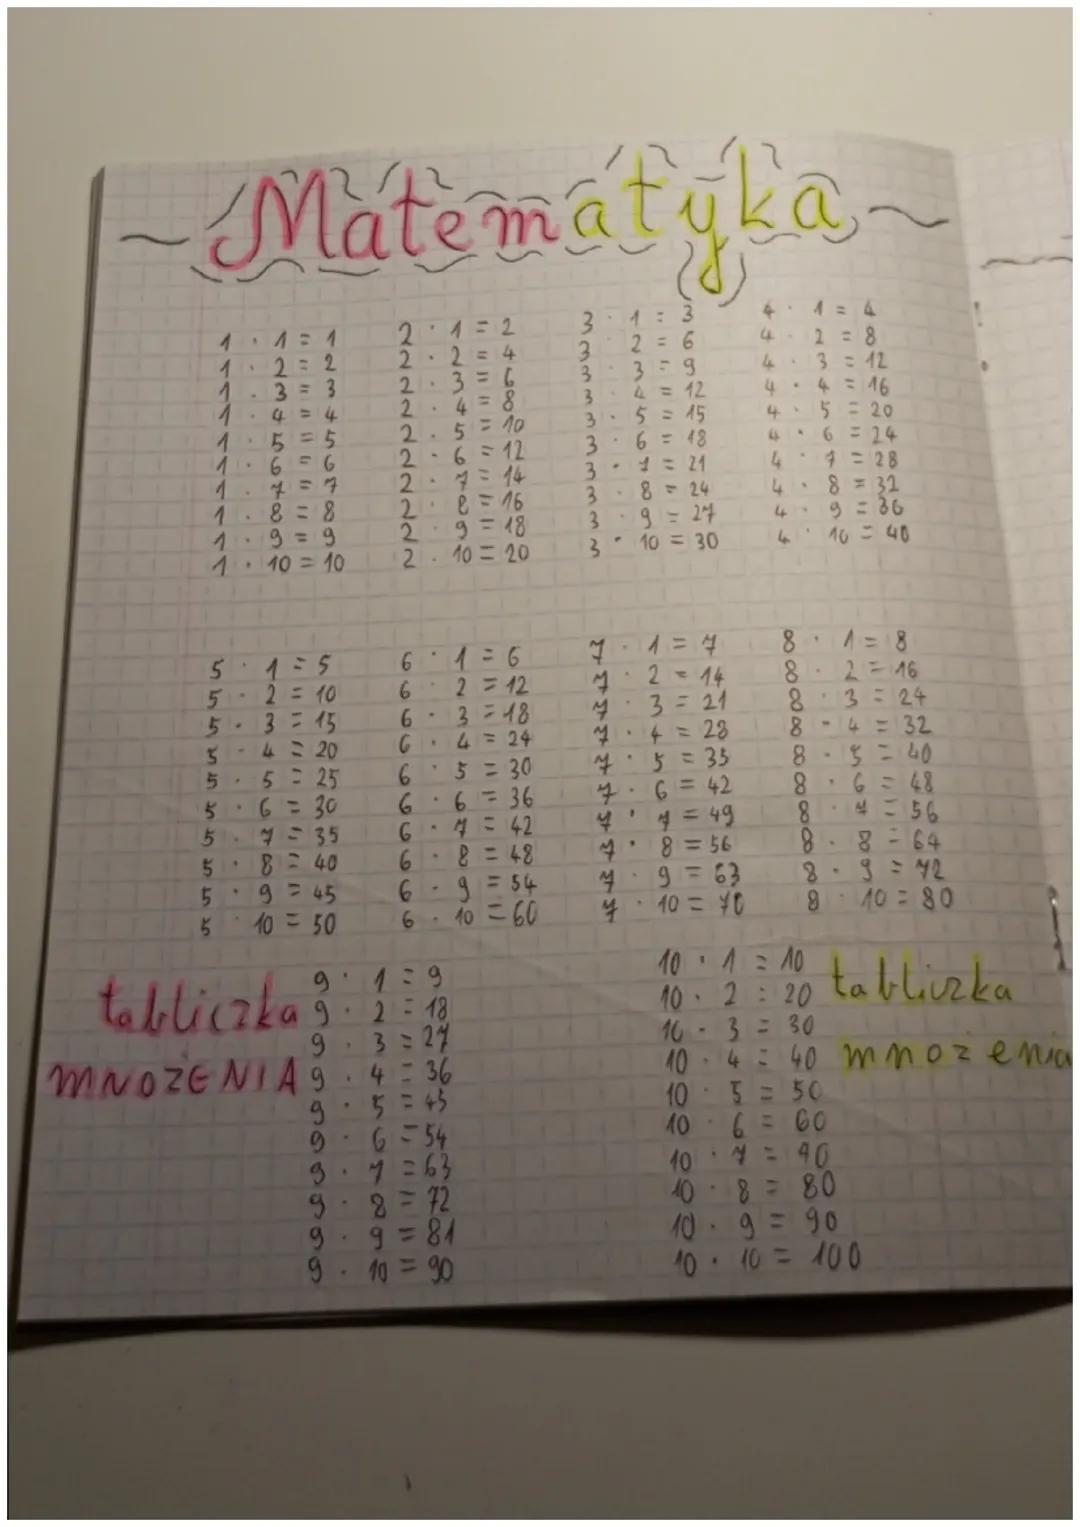 Matematyka
1 · 1 = 1
1 · 2 = 2
1 · 3 = 3
1 · 4 = 4
1 · 5 = 5
1 · 6 = 6
1 · 7 = 7
1 · 8 = 8
1 · 9 = 9
1 · 10 = 10
2 · 1 = 2
2 · 2 = 4
2 · 3 = 6
2 · 4 = 8
2 · 5 = 10
2 · 6 = 12
2 · 7 = 14
2 · 8 = 16
2 · 9 = 18
2 · 10 = 20
3 · 1 = 3
3 2 = 6
3 · 3 = 9
3 · 4 = 12
3 · 5 = 15
3 · 6 = 18
3 · 7 = 21
3 · 8 = 24
3 · 9 = 27
3 · 10 = 30
4 · 1 = 4
4 · 2 = 8
4 · 3 = 12
4 · 4 = 16
4 · 5 = 20
4 · 6 = 24
4 · 7 = 28
4 · 8 = 32
4 · 9 = 36
4 · 10 = 40
5 · 1 = 5
5 · 2 = 10
5 · 3 = 15
5 · 4 = 20
5 · 5 = 25
5 · 6 = 30
5 · 7 = 35
5 · 8 = 40
5 · 9 = 45
5 · 10 = 50
6 · 1 = 6
6 · 2 = 12
6 · 3 = 18
6 · 4 = 24
6 · 5 = 30
6 · 6 = 36
6 · 7 = 42
6 · 8 = 48
6 · 9 = 54
6 · 10 = 60
7 · 1 = 7
7 · 2 = 14
7 · 3 = 21
7 · 4 = 28
7 · 5 = 35
7 · 6 = 42
7 · 7 = 49
7 · 8 = 56
7 · 9 = 63
7 · 10 = 70
8 · 1 = 8
8 · 2 = 16
8 · 3 = 24
8 · 4 = 32
8 · 5 = 40
8 · 6 = 48
8 · 7 = 56
8 · 8 = 64
8 · 9 = 72
8 · 10 = 80
tabliczka
MNOŻENIA
9 · 1 = 9
9 · 2 = 18
9 · 3 = 27
9 · 4 = 36
9 · 5 = 45
9 · 6 = 54
9 · 7 = 63
9 · 8 = 72
9 · 9 = 81
9 · 10 = 90
10 · 1 = 10
10 · 2 = 20
10 · 3 = 30
10 · 4 = 40
10 · 5 = 50
10 · 6 = 60
10 · 7 = 70
10 · 8 = 80
10 · 9 = 90
10 · 10 = 100
tabliczka
mnożenia